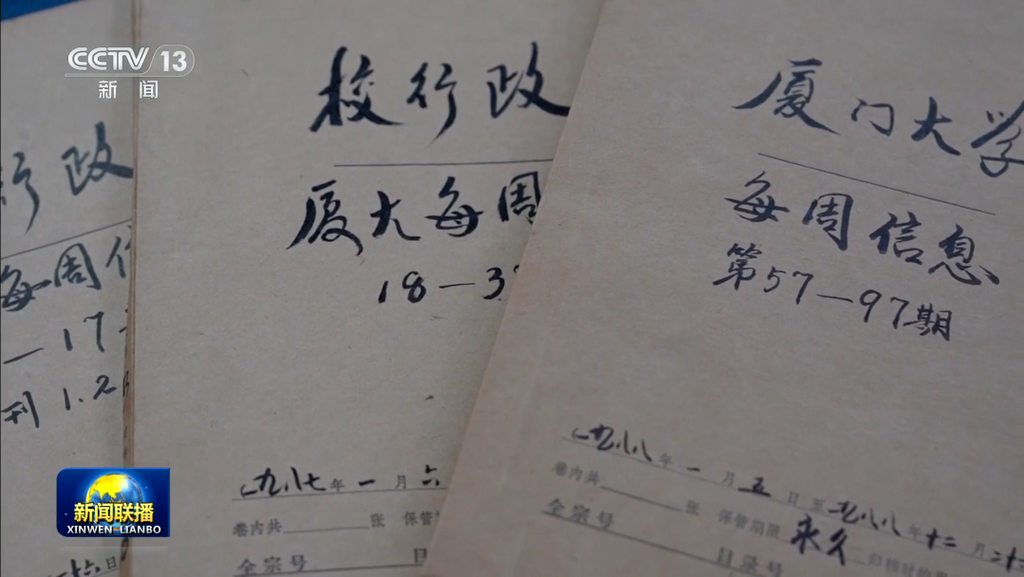 CCTV 13
新闻
行政
每周信
— 17
刊 1.2
校行政
厦大每周
18—3
一九八七年一月六
卷内共 张 保管
全宗号 目
厦门大学
每周信息
第57—97期
一九八八年一月五日至一九八八年十二月二十
卷内共 张 保管期限 永久
全宗号 目录号
十六日
新闻联播
XINWEN LIANBO